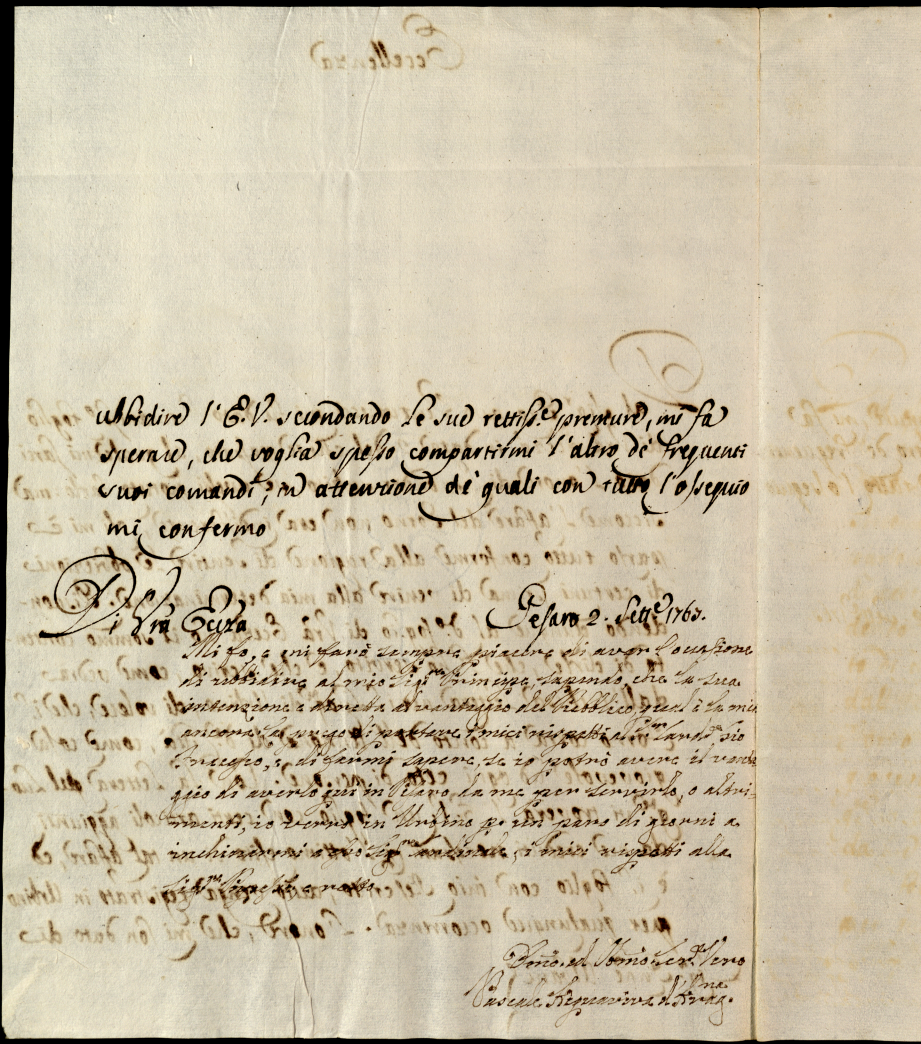 ubbidire l'E. V. secondando le sue rettiss.e premure, mi fa
sperare, che voglia spesso compartirmi l'altro de' frequenti
suoi comandi; in attenzione de' quali con tutto l'ossequio
mi confermo
Di Vrã Eccza Pesaro 2. Sett.e 1763.
Mi fo, e mi farò sempre piacere di aver l'occasione
di ubbidire al mio Sigr Principe, sapendo, che la sua
intenzione è diretta al vantaggio del Pubblico, qual è la mia
ancora. La prego di mettere i miei rispetti al Sigr Card.e Zio
e di farmi sapere, se io potrò avere il vantag
gio di averlo qui in Pesaro da me per servirlo, o altri-
menti, io verrò in Urbino p un paro di giorni a
inchinarmi a i miei rispetti alla
Sigra
Dmo. ed Obmo Ser.e Vero
Pasquale Acquaviva d'Arag.na